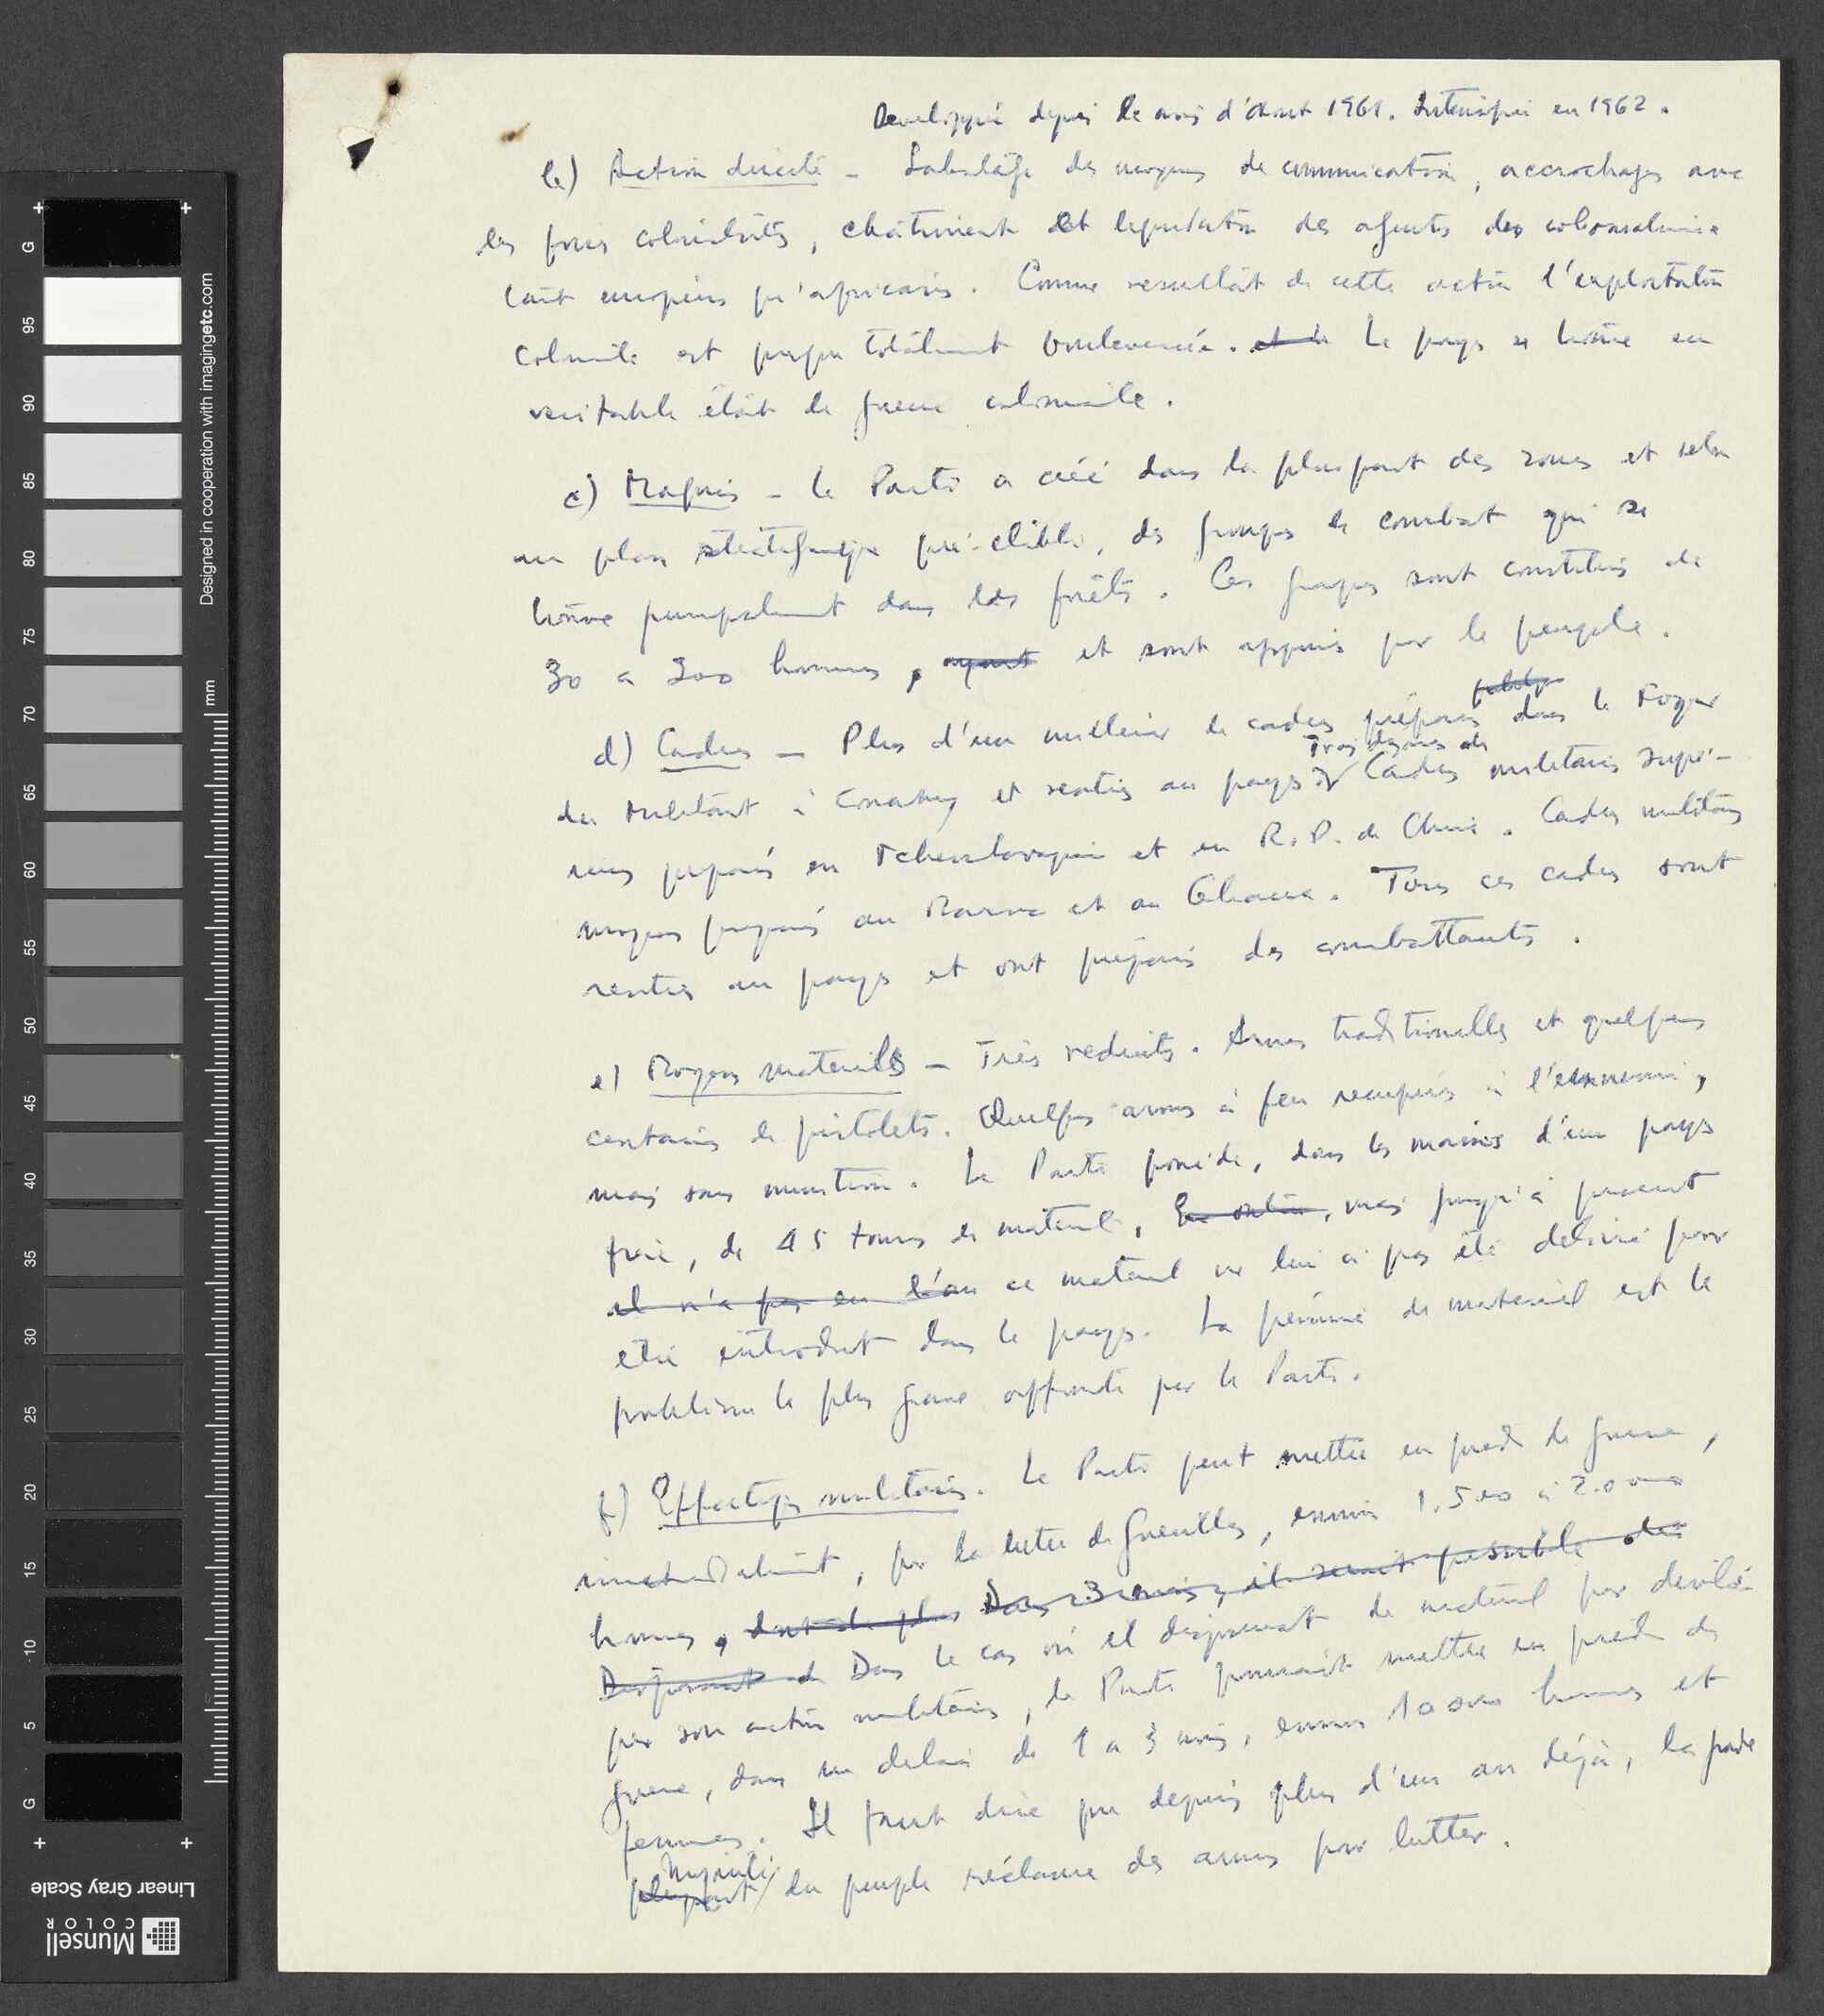 Developpée depuis le mois d'Aout 1961. Intensifiée en 1962.
b) Action directe - Sabotage des moyens de communication, accrochages avec
les forces colonialistes, châtiment et liquidation des agents des colonialisme
tant européens qu'africains. Comme resultat de cette action l'exploitation
coloniale est presque totalement bouleversée. et le Le pays se trouve en
veritable état de guerre coloniale.
c) Maquis - Le Parti a créé dans la plus part des zones et selon
un plan strategique pré-etabli, des groupes de combat qui se
trouve principalement dans les forêts. Ces groupes sont constitués de
30 a 300 hommes, ayant et sont appuiés par le peuple.
d) Cadres - Plus d'un millier de cadres préparés politique dans le Foyer
du Militant à Conakry et rentrés au pays. Trois dizaines de Cadres militaires supé-
rieurs preparés en Tchecoslovaquie et en R.P. de Chine. Cadres militaires
moyens preparés au Maroc et au Ghana. Tous ces cadres sont
rentrés au pays et ont préparés des combattants.
e) Moyens materiels - Très reduits. Armes traditionelles et quelques
centaines de pistolets. Quelques armes à feu recuperés à l'ennemi,
mais sans munition. Le Parti possède, dans les maines d'un pays
frère, de 45 tonnes de materiel, En outre, mais jusqu'à present
il n'a pas eu l'au ce materiel ne lui a pas été delivré pour
etre introduit dans le pays. La pénurie de materiel est le
problème le plus grave affronté par le Parti.
f) Effectifs militaires. Le Parti peut mettre en pied de guerre,
immediatement, pour la lutte de guerrilles, environ 1.500 à 2.000
hommes, dont de plus Dans 3 mois, il serait possible de
Disposant de Dans le cas où il disposerait de materiel pour devélo-
per son action militaire, le Parti pourrait mettre en pied de
guerre, dans un delai de 1 a 3 mois, environ 10000 hommes et
femmes. Il faut dire que depuis plus d'un an déjà, la grande
plupart majorité du peuple réclame des armes pour lutter.
G 95 90 85 80 75 70 65 60 55 50 45 40 35 30 25 20 15 10 5 G
mm
Designed in cooperation with imagingetc.com
Linear Gray Scale
Munsell
COLOR